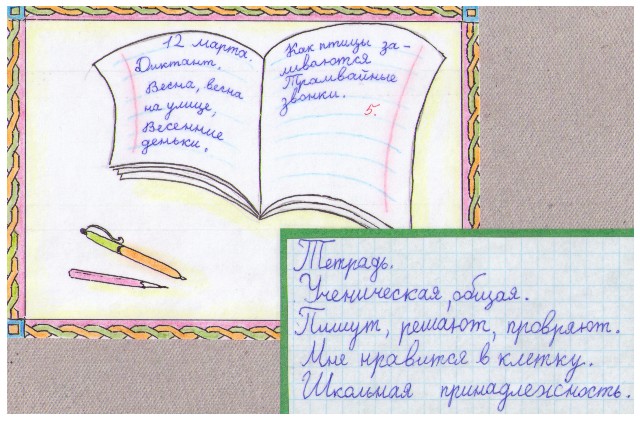 12 марта.
Диктант.
Весна, весна
на улице,
Весенние
деньки,
Как птицы за-
ливаются
Трамвайные
звонки.
5.
Тетрадь.
Ученическая, общая.
Пишут, решают, провряют.
Мне нравится в клетку.
Школьная принадлежность.